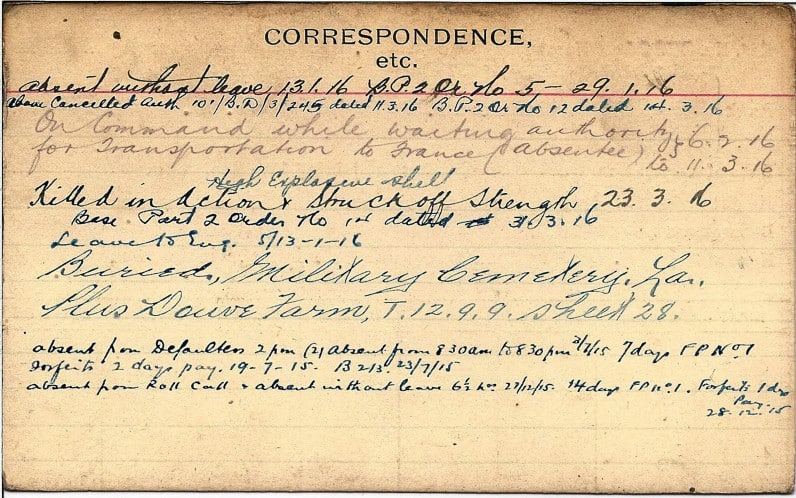 CORRESPONDENCE,
etc.
absent without leave, 13.1.16 B.P. 2 Or No 5 - 29.1.16
Above Cancelled Auth 101/B.D/3/245 dated 11.3.16 B.P. 2 Or No 12 dated 14.3.16
On Command while waiting authority 6.2.16
for Transportation to France (Absentee) to 11.3.16
High Explosive Shell
Killed in Action & Struck off Strength, 23.3.16
Base Part 2 Order No 14 dated 31.3.16
Leave to Eng. 5/13-1-16
Buried, Military Cemetery, La.
Plus Douve Farm, T.12.9.9. Sheet 28.
absent from Defaulters 2 pm (2) Absent from 8 30 am to 8 30 pm 2/7/15 7 days F P No 1
Forfeits 2 days pay. 19-7-15. B 213 23/7/15
absent from Roll Call & absent without leave 6½ hrs 27/12/15. 14 days F P No 1. Forfeits 1 days
Pay.
28-12-15